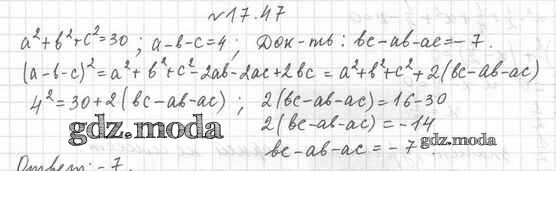 №17.47
a²+b²+c²=30; a-b-c=4; Док-ть: bc-ab-ac=-7.
(a-b-c)²=a²+b²+c²-2ab-2ac+2bc=a²+b²+c²+2(bc-ab-ac)
4²=30+2(bc-ab-ac); 2(bc-ab-ac)=16-30
2(bc-ab-ac)=-14
gdz.moda
bc-ab-ac=-7
gdz.moda
Ответ: -7.